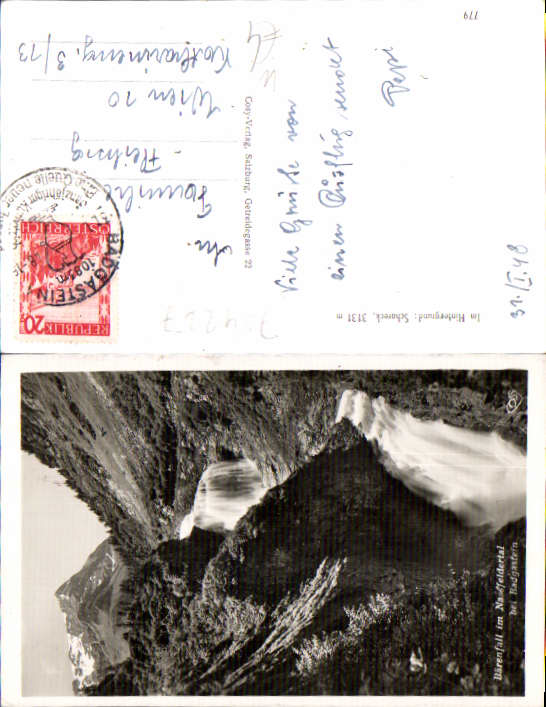 31./I.48
Viele Grüße von
einem Ausflug, sendet
Pepi
Im Hintergrund: Schareck, 3131 m
Cosy-Verlag, Salzburg, Getreidegasse 22
An
Familie
Wien 20
3/13
179
BADGASTEIN
1083 m
REPUBLIK
ÖSTERREICH
20
Bärenfall im Naßfeldertal
bei Badgastein